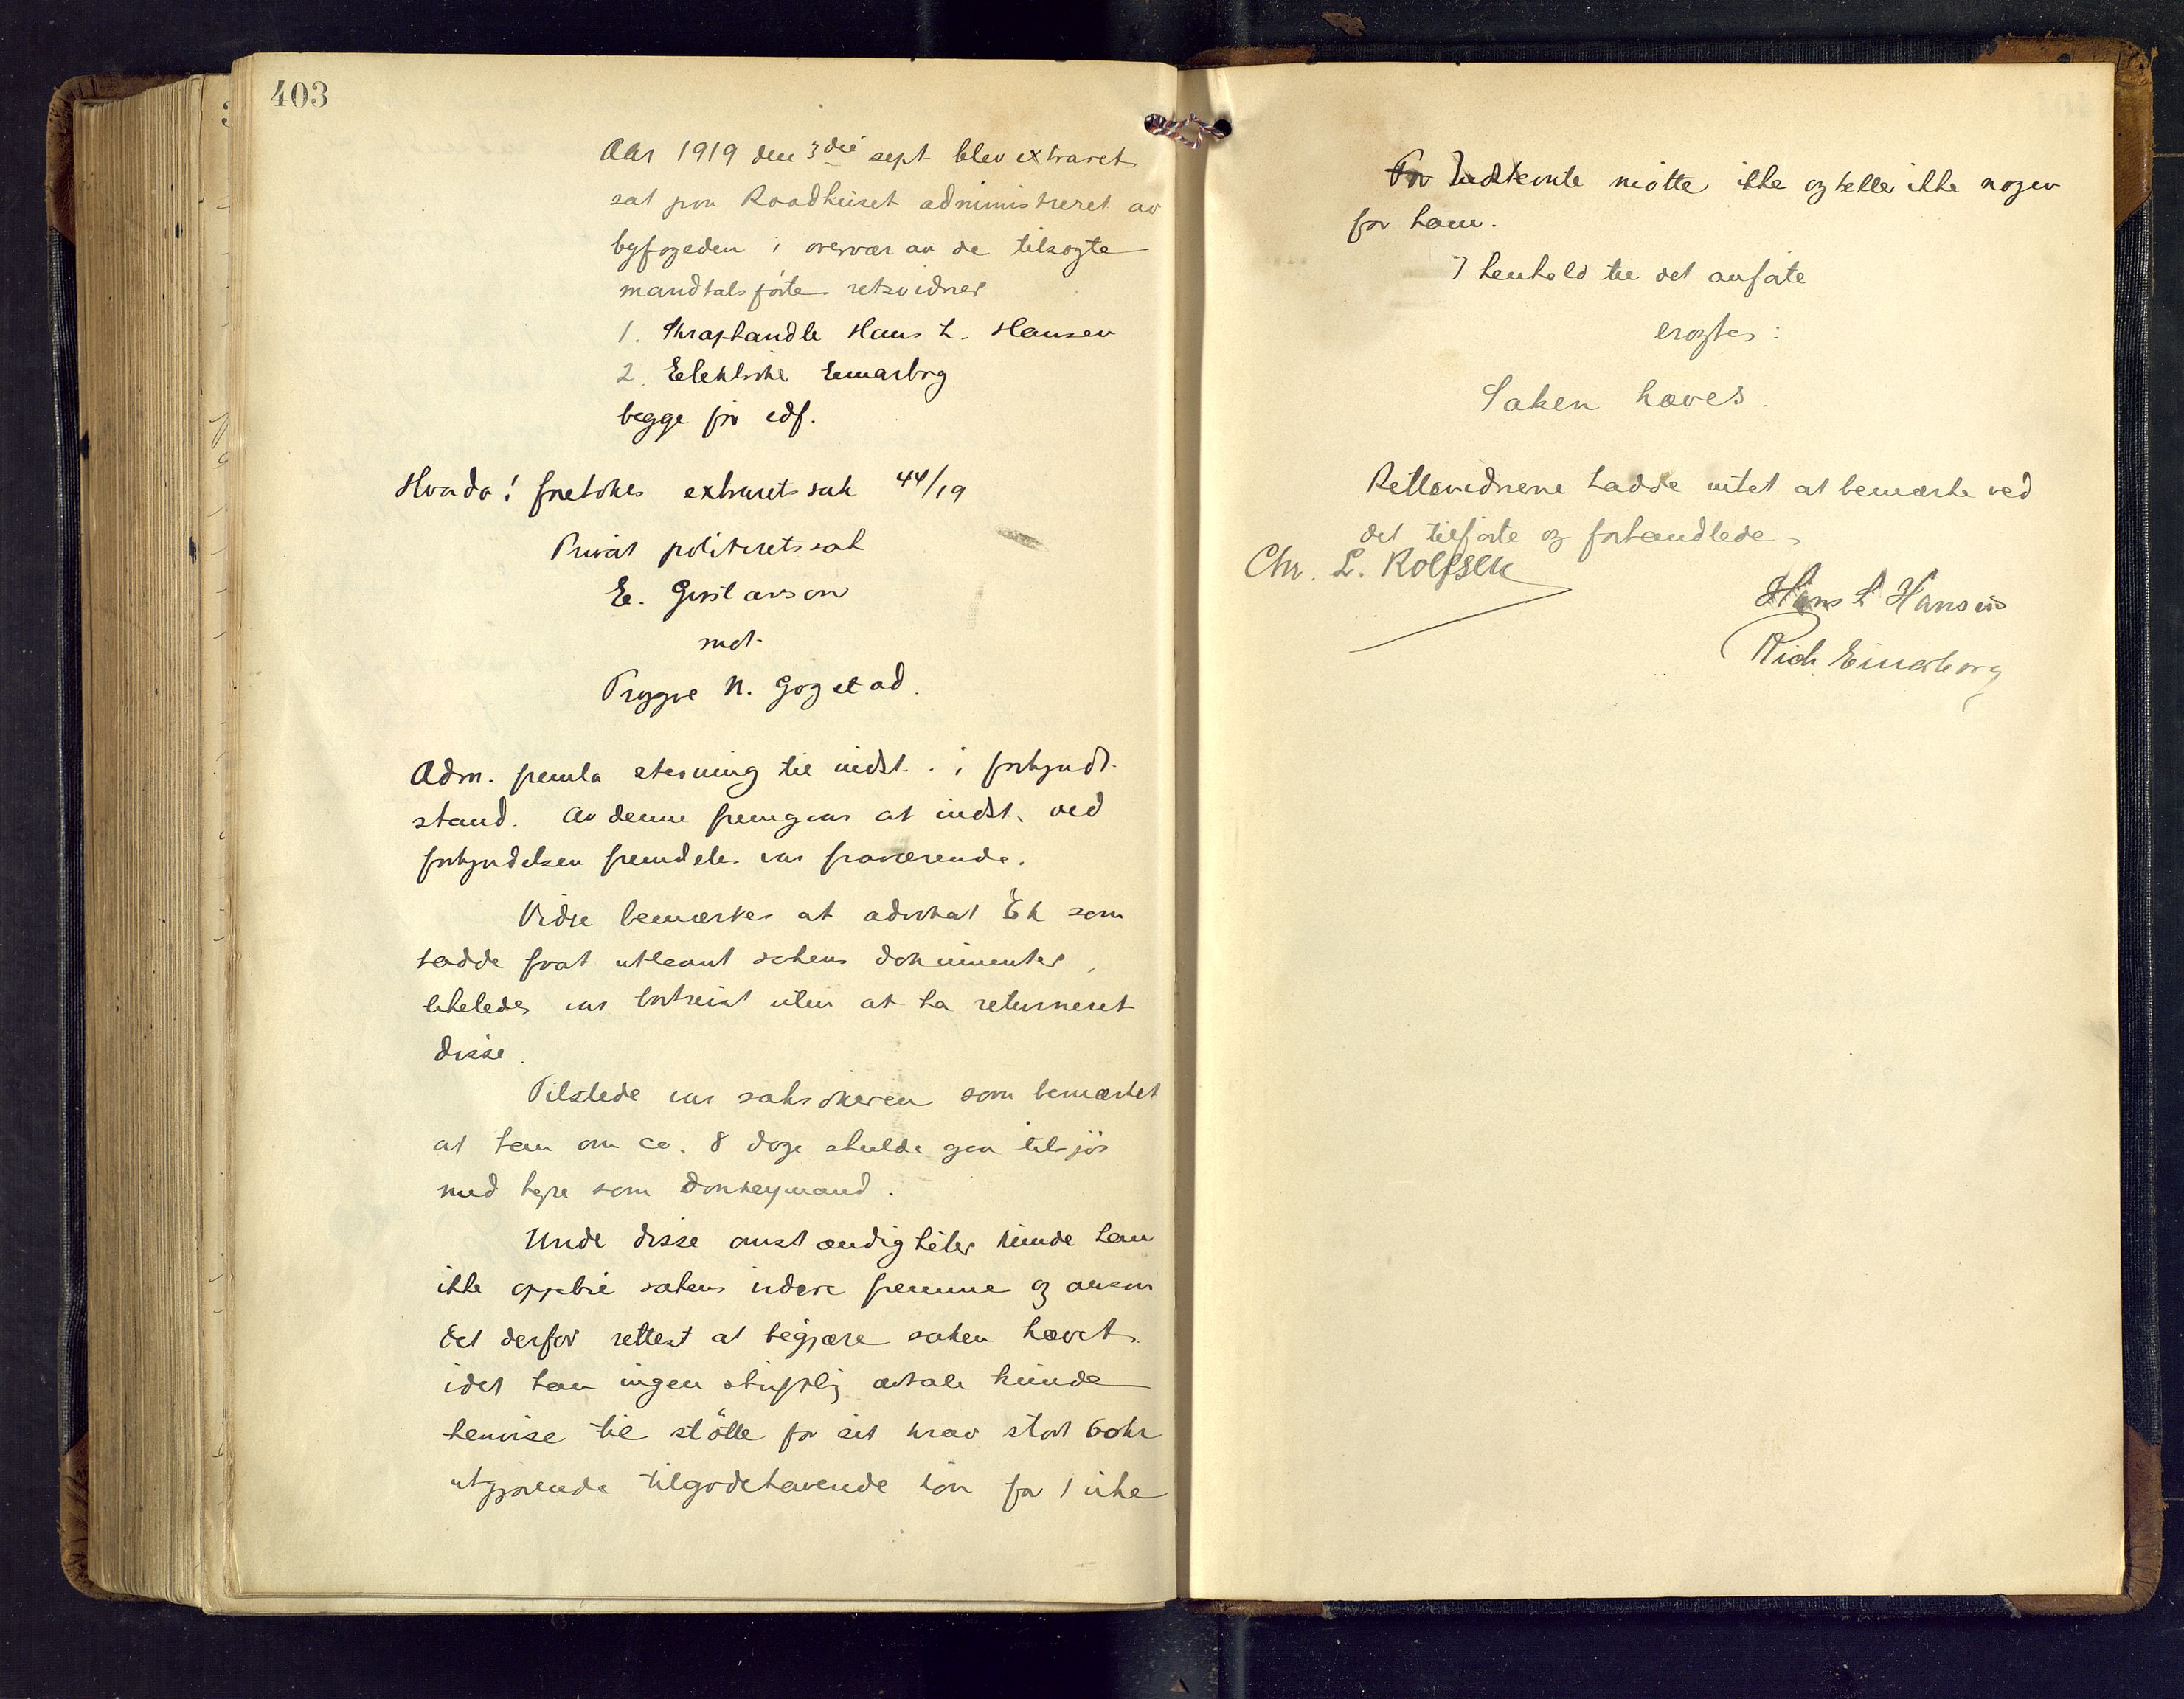 403
Aar 1919 den 3die sept. blev extraret
sat paa Raadhuset administreret av
byfogeden i overvær av de tilsagte
mandtalsførte retsvidner
1. Skraphandle Hans L. Hansen
2. Elektrike Einarborg
begge för edf.
Hvorda! foretokes extraretssak 44/19
Privat politiretssak
E. Gustavson
mot
Trygve N. Gogstad.
Adm. fremla stevning til indst. i forkyndt
stand. Av denne fremgaar at indst. ved
forkyndelsen fremdeles var fraværende.
Vidre bemærkes at advokat Ek som
hadde faat utleant sakens dokumenter,
likeledes var bortreist uten at ha returneret
disse.
Tilstede var saksökeren som bemærket
at han om ca. 8 dage skulde gaa tilsjös
med hyre som Donkeymand.
Unde disse omstændigheter kunde han
ikke oppebie sakens videre fremme og ansaa
det derfor rettest at begjære saken hævet
idet han ingen skriftlig avtale kunde
henvise til til stötte for sit krav stort 60 kr
utgjørende tilgodehavende lön for 1 uke
For Indstevnte mötte ikke og heller ikke nogen
for ham.
I henhold til det anførte
eragtes:
Saken hæves.
Rettsvidnene hadde intet at bemærke ved
det tilførte og forhandlede.
Chr. L. Rolfsen
Hans L Hansen
Rich. Einarborg